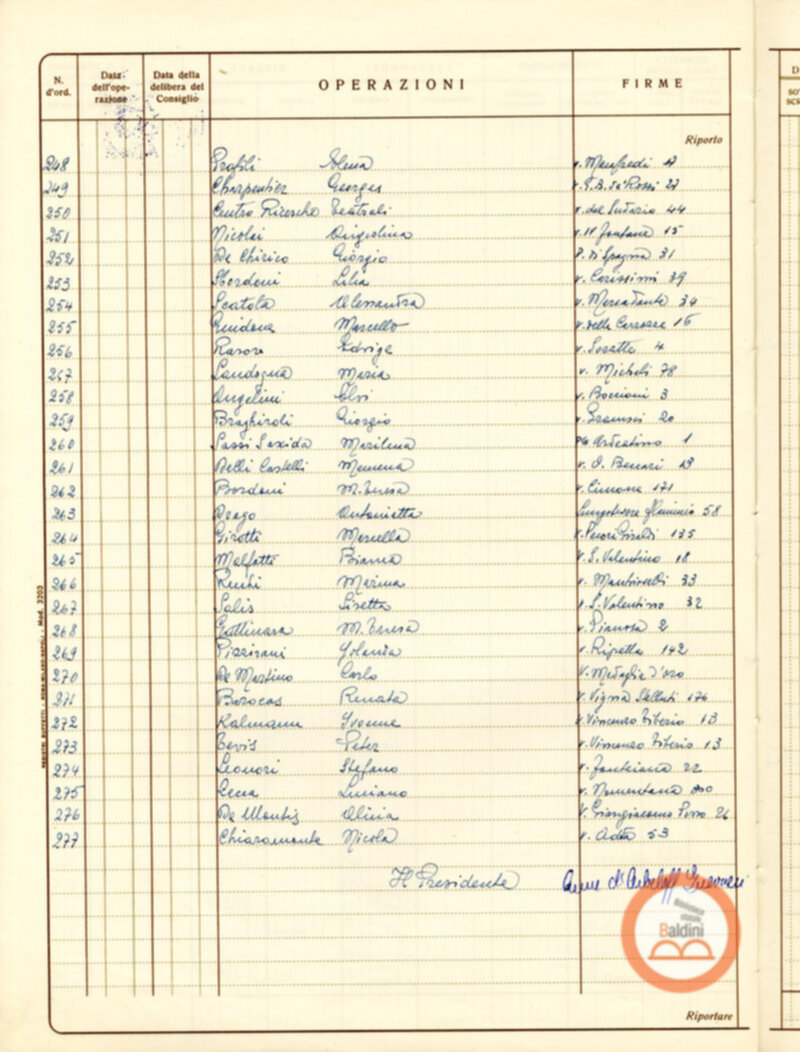 N. d'ord.
Data dell'ope-razione
Data della delibera del Consiglio
OPERAZIONI
FIRME
Riporto
248 Elena v. Manfredi 17
249 Charpentier Georges v. G.B. de Rossi 27
250 Centro Ricerche Teatrali v. del Sudario 44
251 Nicolai Angiolina v. 15
252 De Chirico Giorgio P. di Spagna 31
253 Lilia v. Carissimi 39
254 Scatola Alessandra v. Mercadante 34
255 Guidona Marcello v. delle Carrozze 16
256 Rasore Edvige v. Soratte 4
267 Landogna Maria v. Micheli 78
258 Angelini Elvi v. Boccioni 3
259 Braghiroli Giorgio v. Gramsci 20
260 Marilena Ardeatino 1
261 Delli Castelli Momena v. 
262 Bordoni M. Teresa v. Cimone 171
263 Drago Antonietta Lungotevere Flaminio 58
264 Girotti Marcella 135
265 Malfatti Bianca v. S. Valentino 18
266 Marina v. 33
267 Salis Lisetta v. S. Valentino 32
268 Gattinara M. Teresa v. Pianosa 2
269 Jolanda v. Ripetta 142
270 De Martino Carlo v. Medaglie d'oro
271 Barocas Renata v. Vigna Stelluti 176
272 Kalmann Yvonne v. Vincenzo Tiberio 13
273 Bevis Peter v. Vincenzo Tiberio 13
274 Leonori Stefano v. Fonteiana 22
275 Luciano v. Nomentana
276 Alina v. Giangiacomo Porro 26
277 Chiaromonte Nicola v. Adda 53
Il Presidente Anne d'Arbeloff
Biblioteca statale
Baldini
Riportare